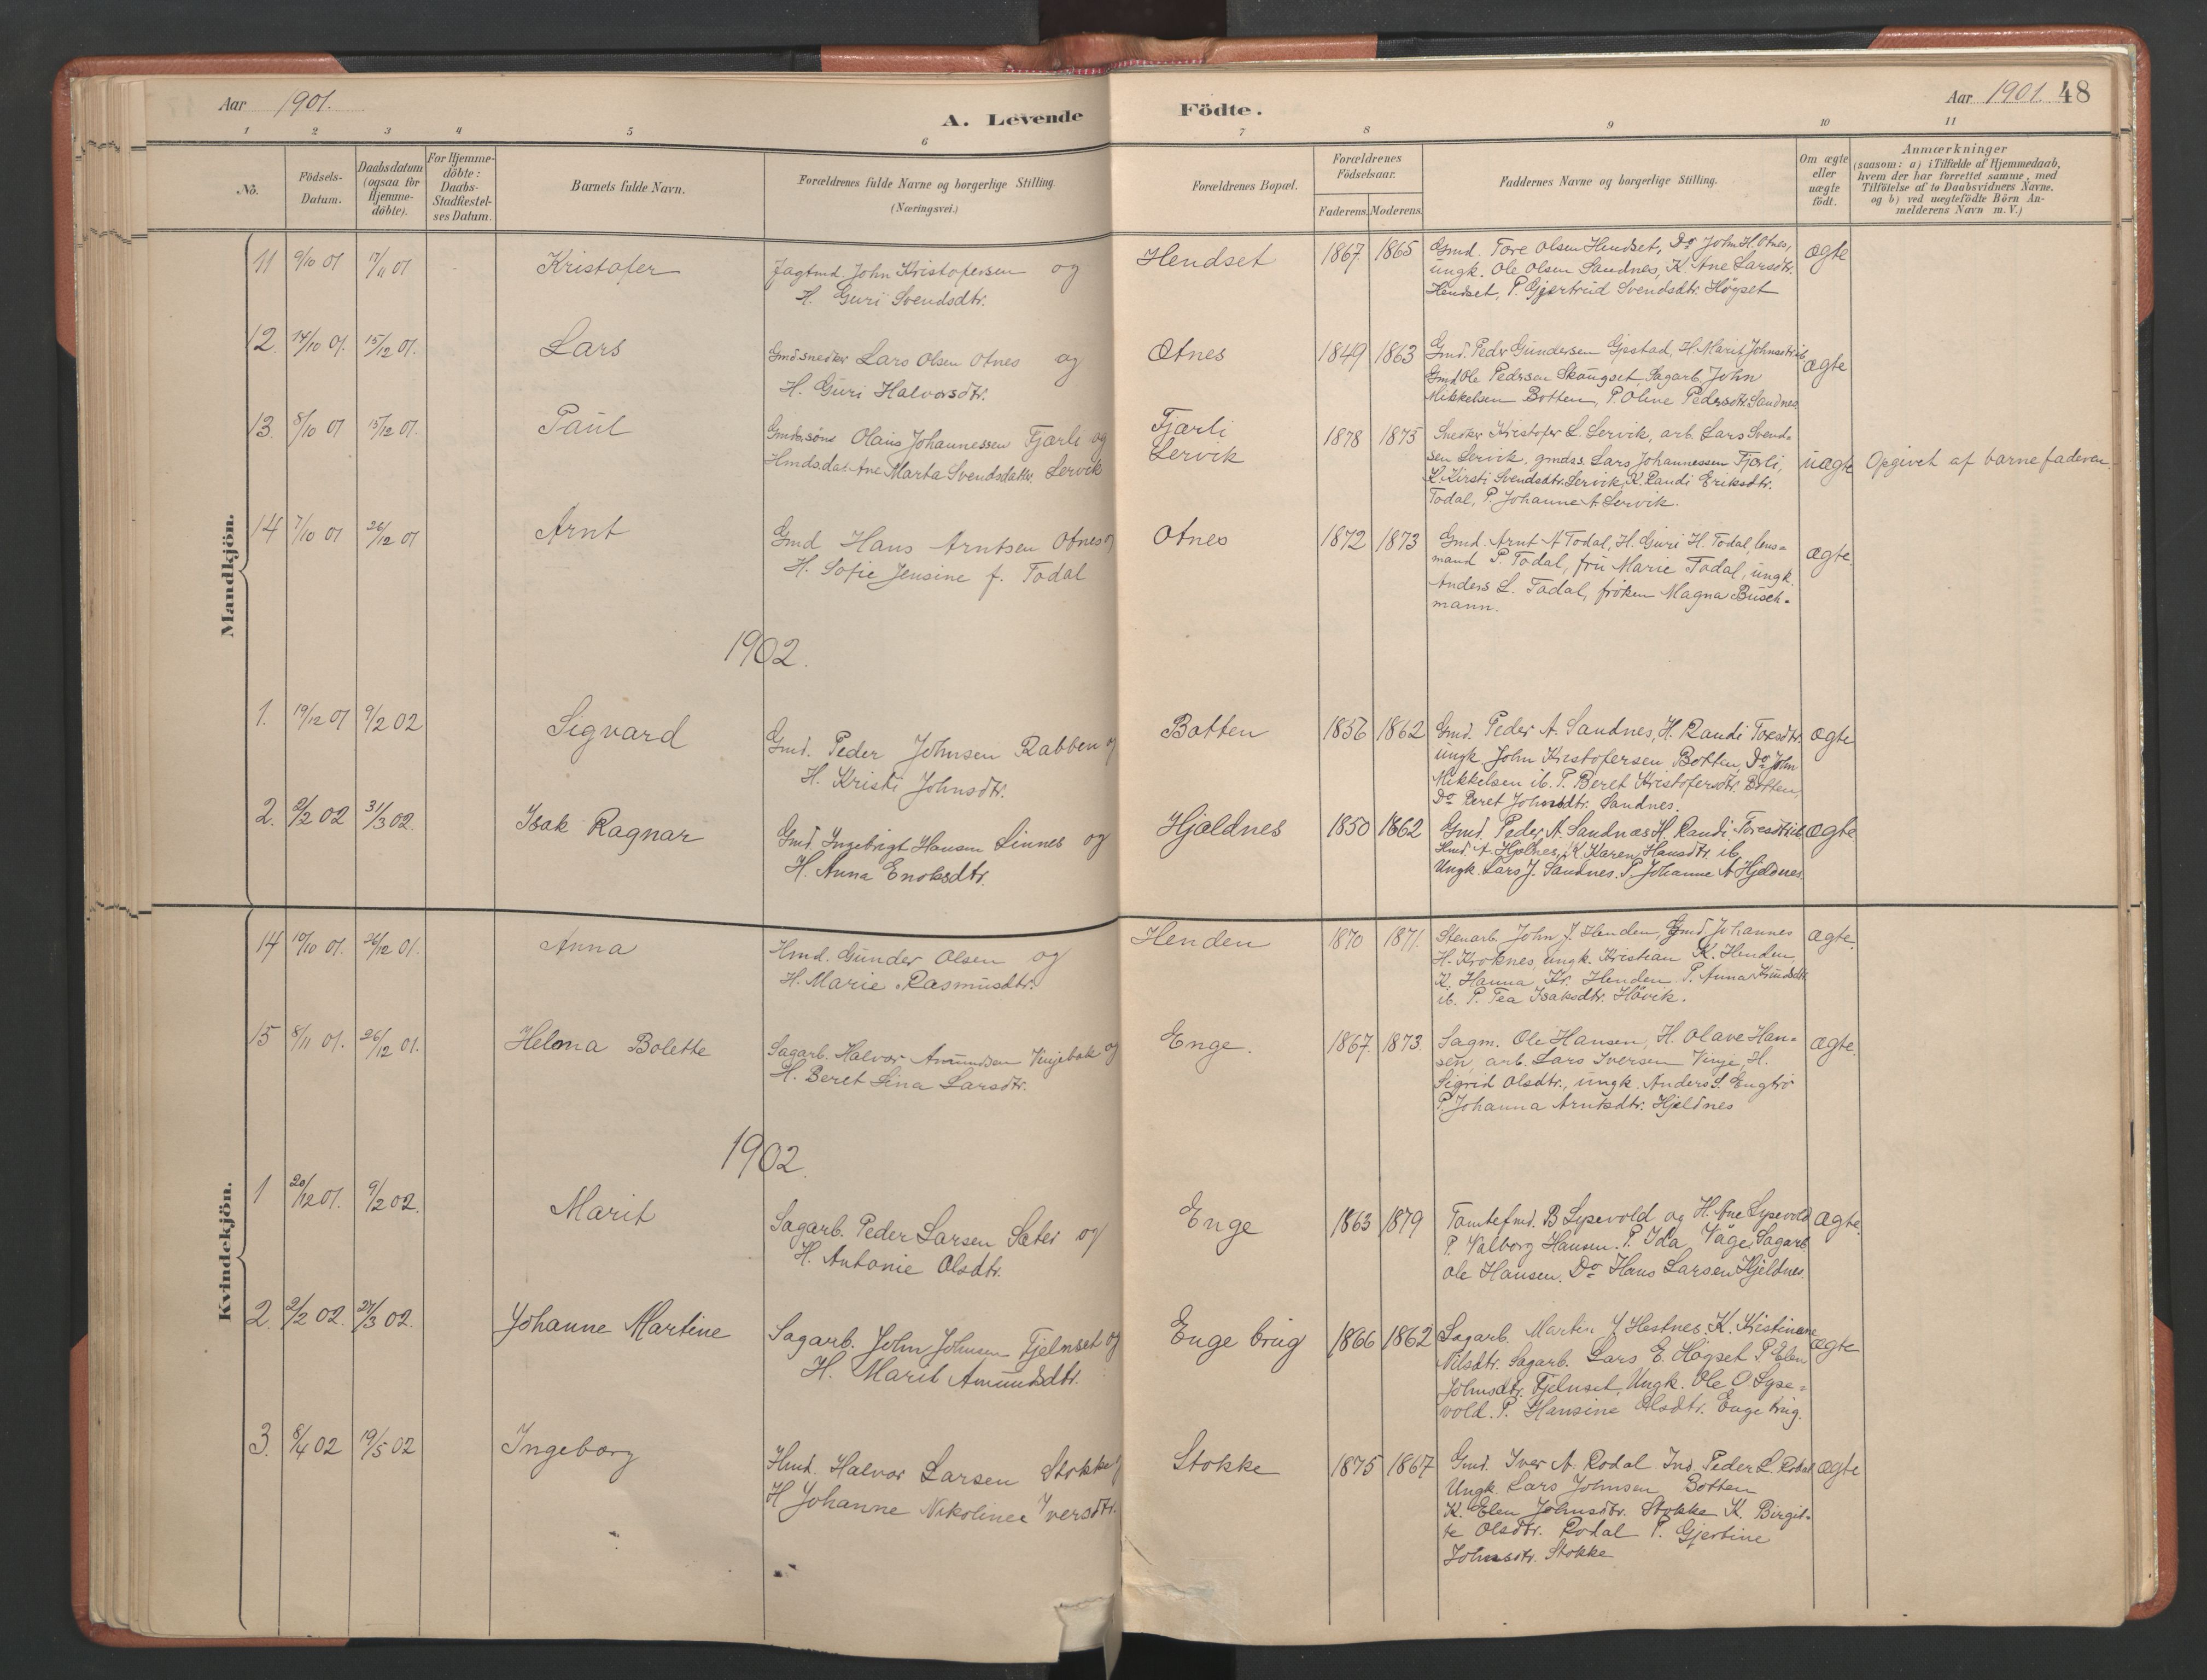 Aar 1901.
A. Levende Födte.
Aar 1901. 48
1 2 3 4 5 6 7 8 9 10 11
No.
Födsels-
Datum.
Daabsdatum
(ogsaa for
Hjemme-
döbte).
For Hjemme-
döbte:
Daabs-
Stadfæstel-
ses Datum.
Barnets fulde Navn.
Forældrenes fulde Navne og borgerlige Stilling
(Næringsvei.)
Forældrenes Bopæl.
Forældrenes
Födselsaar.
Faderens. Moderens.
Faddernes Navne og borgerlige Stilling.
Om ægte
eller
uægte
födt.
Anmærkninger
(saasom: a) i Tilfælde af Hjemmedaab,
hvem der har forrettet samme, med
Tilföielse af to Daabsvidners Navne.
og b) ved uægtefödte Börn An-
melderens Navn m. V.)
Mandkjön.
11 9/10 01 17/11 01 Kristofer
Jagtmd. John Kristofersen og
H. Guri Svendsdtr.
Hendset 1867 1865
Gmd. Tore Olsen Hendset, Do John H. Otnes,
ungk. Ole Olsen Sandnes, K. Ane Larsdtr.
Hendset, P. Gjertrud Svendsdtr. Högset
ægte
12. 14/10 01. 15/12 01. Lars
Gmd. snedker Lars Olsen Otnes og
H. Guri Halvorsdtr.
Otnes 1849 1863
Gmd. Peder Gundersen Gjestad, H. Marit Johnsdtr. ib.
Gmd Ole Pedersen Skaugset, Sagarb. John
Mikkelsen Botten, P. Oline Pedersdtr. Sandnes.
ægte
13. 8/10 01 15/12 01. Paul
Gmdssöns Olaus Johannessen Fjærli og
Hmdsdat. Ane Marta Svendsdatter Lervik
Fjærli
Lervik
1878 1875
Snedker Kristofer L. Lervik, arb. Lars Svend-
sen Lervik, gmdss. Lars Johannessen Fjærli,
K. Kirsti Svendsdtr. Lervik, K. Randi Eriksdtr.
Todal, P. Johanne A. Lervik.
uægte Opgivet af barnefaderen.
14 7/10 01 26/12 01 Arnt
Gmd Hans Arntsen Otnes og
H. Sofie Jensine f. Todal
Otnes 1872 1873
Gmd. Arnt A Todal, H. Guri H. Todal, lens-
mand P. Todal, fru Marie Todal, ungk.
Anders L. Todal, fröken Magna Busch-
mann.
ægte.
1902.
1. 19/12 01 9/2 02 Sigvard
Gmd. Peder Johnsen Rabben og
H. Kristi Johnsdtr.
Botten 1856 1862
Gmd. Peder A. Sandnes, H. Randi Toresdtr.
ungk John Kristofersen Botten, Do John
Mikkelsen ib. P. Beret Kristofersdtr. Botten,
Do Beret Johnsdtr. Sandnes.
ægte
2. 2/2 02 31/3 02. Isak Ragnar
Gmd. Ingebrigt Hansen Linnes og
H. Anna Enoksdtr.
Hjældnes 1850 1862
Gmd. Peder A. Sandnæs H. Randi Toresdtr ib
Hmd. A Hjelnes, K Karen Hansdtr. ib.
Ungk. Lars J. Sandnes. P. Johanne A Hjeldnes.
ægte
Kvindekjön.
14 10/10 01. 26/12 01. Anna
Hmd. Gunder Olsen og
H. Marie Rasmusdtr.
Henden 1870 1871.
Stenarb. John J. Henden, Gmd Johannes
H. Kroknes, ungk. Kristian K. Henden,
K. Hanna Kr. Henden. P. Anna Knudsdtr
ib. P. Tea Isaksdtr. Håvik.
ægte.
15 8/11 01. 26/12 01. Helma Bolette
Sagarb. Halvor Amundsen Vinjebak og
H. Beret Lina Larsdtr.
Enge. 1867. 1873.
Sagm. Ole Hansen, H. Olave Han-
sen, arb. Lars Iversen Vinje, H.
Sigrid Olsdtr., ungk. Anders S. Engtrö
P. Johanna Arntsdtr. Hjeldnes
ægte.
1902.
1 20/12 01. 9/2 02. Marit
Sagarb. Peder Larsen Sæter og
H. Antonie Olsdtr.
Enge 1863 1879
Tomtefmd. B Lysevold og H. Ane Lysevold
P. Valborg Hansen. P. Ida Våge, Sagarb
Ole Hansen. Do Hans Larsen Hjeldnes.
Ægte.
2. 2/2 02. 27/3 02. Johanne Martine
Sagarb. John Johnsen Fjelnset og
H. Marit Amundsdtr.
Enge brug 1866 1862
Sagarb. Martin J Hestnes. K. Kristine
Nilsdtr. Sagarb. Lars E. Högset P. Elen
Johnsdtr. Fjelnset, Ungk. Ole O Lyse-
vold. P. Hansine Olsdtr. Enge brug.
ægte
3. 8/4 02 19/5 02 Ingeborg
Hmd. Halvor Larsen Stokke og
H Johanne Nikolinee Iversdtr.
Stokke 1875 1867
Gmd. Iver A. Rodal Ind. Peder L. Rodal
Ungk. Lars Johnsen Botten
K. Elen Johnsdtr. Stokke K. Birgit-
te Olsdtr. Rodal P. Gjertine
Johnsdtr. Stokke
ægte